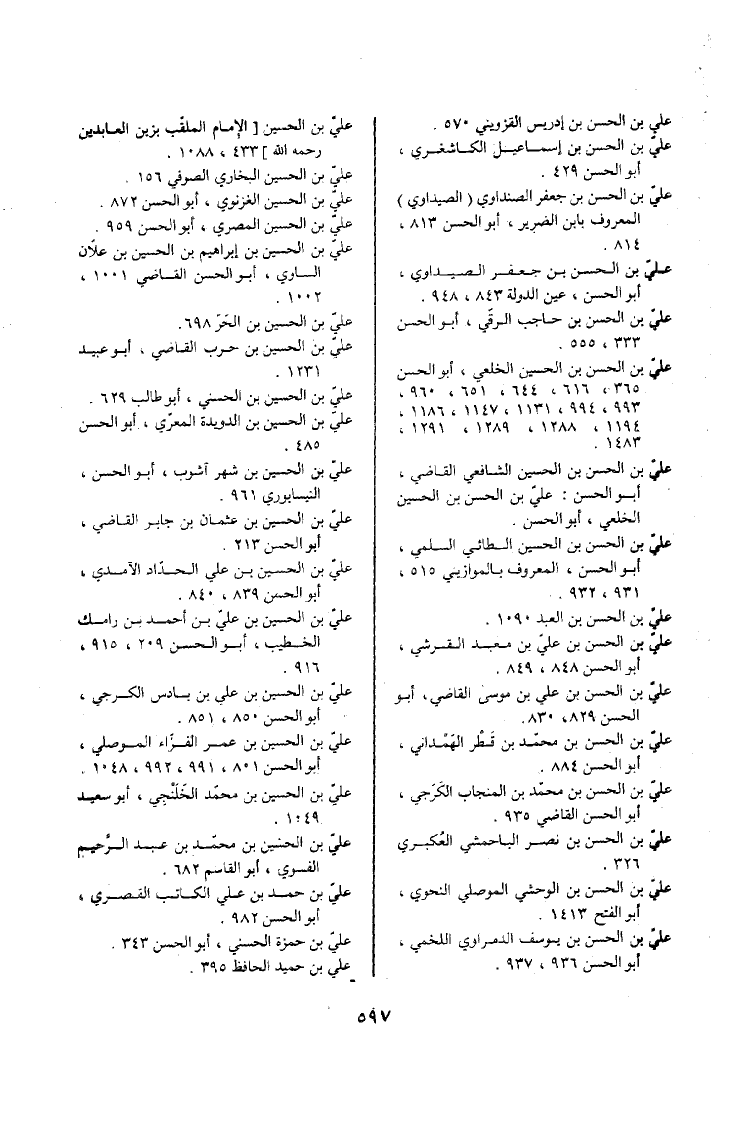 علي بن الحسن بن إدريس القزويني ٥٧٠ .
عليّ بن الحسن بن إسماعيل الكاشغري ،
أبو الحسن ٤٢٩ .
عليّ بن الحسن بن جعفر الصنداوي ( الصيداوي )
المعروف بابن الضرير ، أبو الحسن ٨١٣ ،
٨١٤ .
عليّ بن الحسن بن جعفر الصيداوي ،
أبو الحسن ، عين الدولة ٨٤٣ ، ٩٤٨ .
عليّ بن الحسن بن حاجب الرقّي ، أبو الحسن
٣٣٣ ، ٥٥٥ .
عليّ بن الحسن بن الحسين الخلعي ، أبو الحسن
٣٦٥ ، ٦١٦ ، ٦٤٤ ، ٦٥١ ، ٩٦٠ ،
٩٩٣ ، ٩٩٤ ، ١١٣١ ، ١١٤٧ ، ١١٨٦ ،
١١٩٤ ، ١٢٨٨ ، ١٢٨٩ ، ١٢٩١ ،
١٤٨٣ .
عليّ بن الحسن بن الحسين الشافعي القاضي ،
أبو الحسن : عليّ بن الحسن بن الحسين
الخلعي ، أبو الحسن .
عليّ بن الحسن بن الحسين الطائي السلمي ،
أبو الحسن ، المعروف بالموازيني ٥١٥ ،
٩٣١ ، ٩٣٢ .
عليّ بن الحسن بن العبد ١٠٩٠ .
عليّ بن الحسن بن عليّ بن معبد القرشي ،
أبو الحسن ٨٤٨ ، ٨٤٩ .
عليّ بن الحسن بن علي بن موسى القاضي، أبو
الحسن ٨٢٩، ٨٣٠.
عليّ بن الحسن بن محمّد بن قَطْر الهَمْداني ،
أبو الحسن ٨٨٤ .
عليّ بن الحسن بن محمّد بن المنجاب الكَرَجي ،
أبو الحسن القاضي ٩٣٥ .
عليّ بن الحسن بن نصر الباحمشي العُكبري
٣٢٦ .
عليّ بن الحسن بن الوحشي الموصلي النحوي ،
أبو الفتح ١٤١٣ .
عليّ بن الحسن بن يوسف الدمراوي اللخمي ،
أبو الحسن ٩٣٦ ، ٩٣٧ .
عليّ بن الحسين [ الإمام الملقّب بزين العابدين
رحمه الله ] ٤٣٣ ، ١٠٨٨ .
عليّ بن الحسين البخاري الصوفي ١٥٦ .
عليّ بن الحسين الغزنوي ، أبو الحسن ٨٧٢ .
عليّ بن الحسين المصري ، أبو الحسن ٩٥٩ .
عليّ بن الحسين بن إبراهيم بن الحسين بن علاّن
الساوي ، أبو الحسن القاضي ١٠٠١ ،
١٠٠٢ .
عليّ بن الحسين بن الحَرّ ٦٩٨.
عليّ بن الحسين بن حرب القاضي ، أبو عبيد
١٢٣١ .
عليّ بن الحسين بن الحسني ، أبو طالب ٦٢٩ .
عليّ بن الحسين بن الدويدة المعرّي ، أبو الحسن
٤٨٥ .
عليّ بن الحسين بن شهر آشوب ، أبو الحسن ،
النيسابوري ٩٦١ .
عليّ بن الحسين بن عثمان بن جابر القاضي ،
أبو الحسن ٢١٣ .
عليّ بن الحسين بن علي الحدّاد الآمدي ،
أبو الحسن ٨٣٩ ، ٨٤٠ .
عليّ بن الحسين بن عليّ بن أحمد بن رامك
الخطيب ، أبو الحسن ٢٠٩ ، ٩١٥ ،
٩١٦ .
عليّ بن الحسين بن علي بن بادس الكرجي ،
أبو الحسن ٨٥٠ ، ٨٥١ .
عليّ بن الحسين بن عمر الفرّاء الموصلي ،
أبو الحسن ٨٠١ ، ٩٩١ ، ٩٩٢ ، ١٠٤٨ .
عليّ بن الحسين بن محمّد الخَلَنْجي ، أبو سعيد
١٠٤٩ .
عليّ بن الحسين بن محمّد بن عبد الرَّحيم
الفسوي ، أبو القاسم ٦٨٢ .
عليّ بن حمد بن علي الكاتب القصري ،
أبو الحسن ٩٨٢ .
عليّ بن حمزة الحسني ، أبو الحسن ٣٤٣ .
علي بن حميد الحافظ ٣٩٥ .
٥٩٧